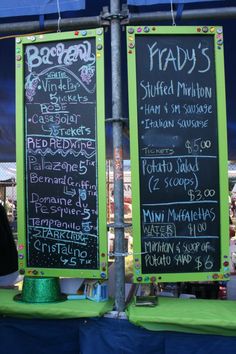 Bacchanal
WHITE
Vin de Pays
5 Tickets
ROSÉ
Casa Solar
5 Tickets
RED RED WINE
Palazone 5
Bernard Griffin
5 Tix
Domaine du
Pesquier 5
Tempranillo 5
SPARKLING
Cristalino
5 TIX
FRADY'S
Stuffed Mirliton
* HAM & SM SAUSAGE
* Italian SAUSAGE
TICKETS
$5.00
POTATO SALAD
(2 SCOOPS)
$3.00
MINI MUFFALETTAS
WATER $1.00
Mirliton & SCOOP OF
POTATO SALAD $6